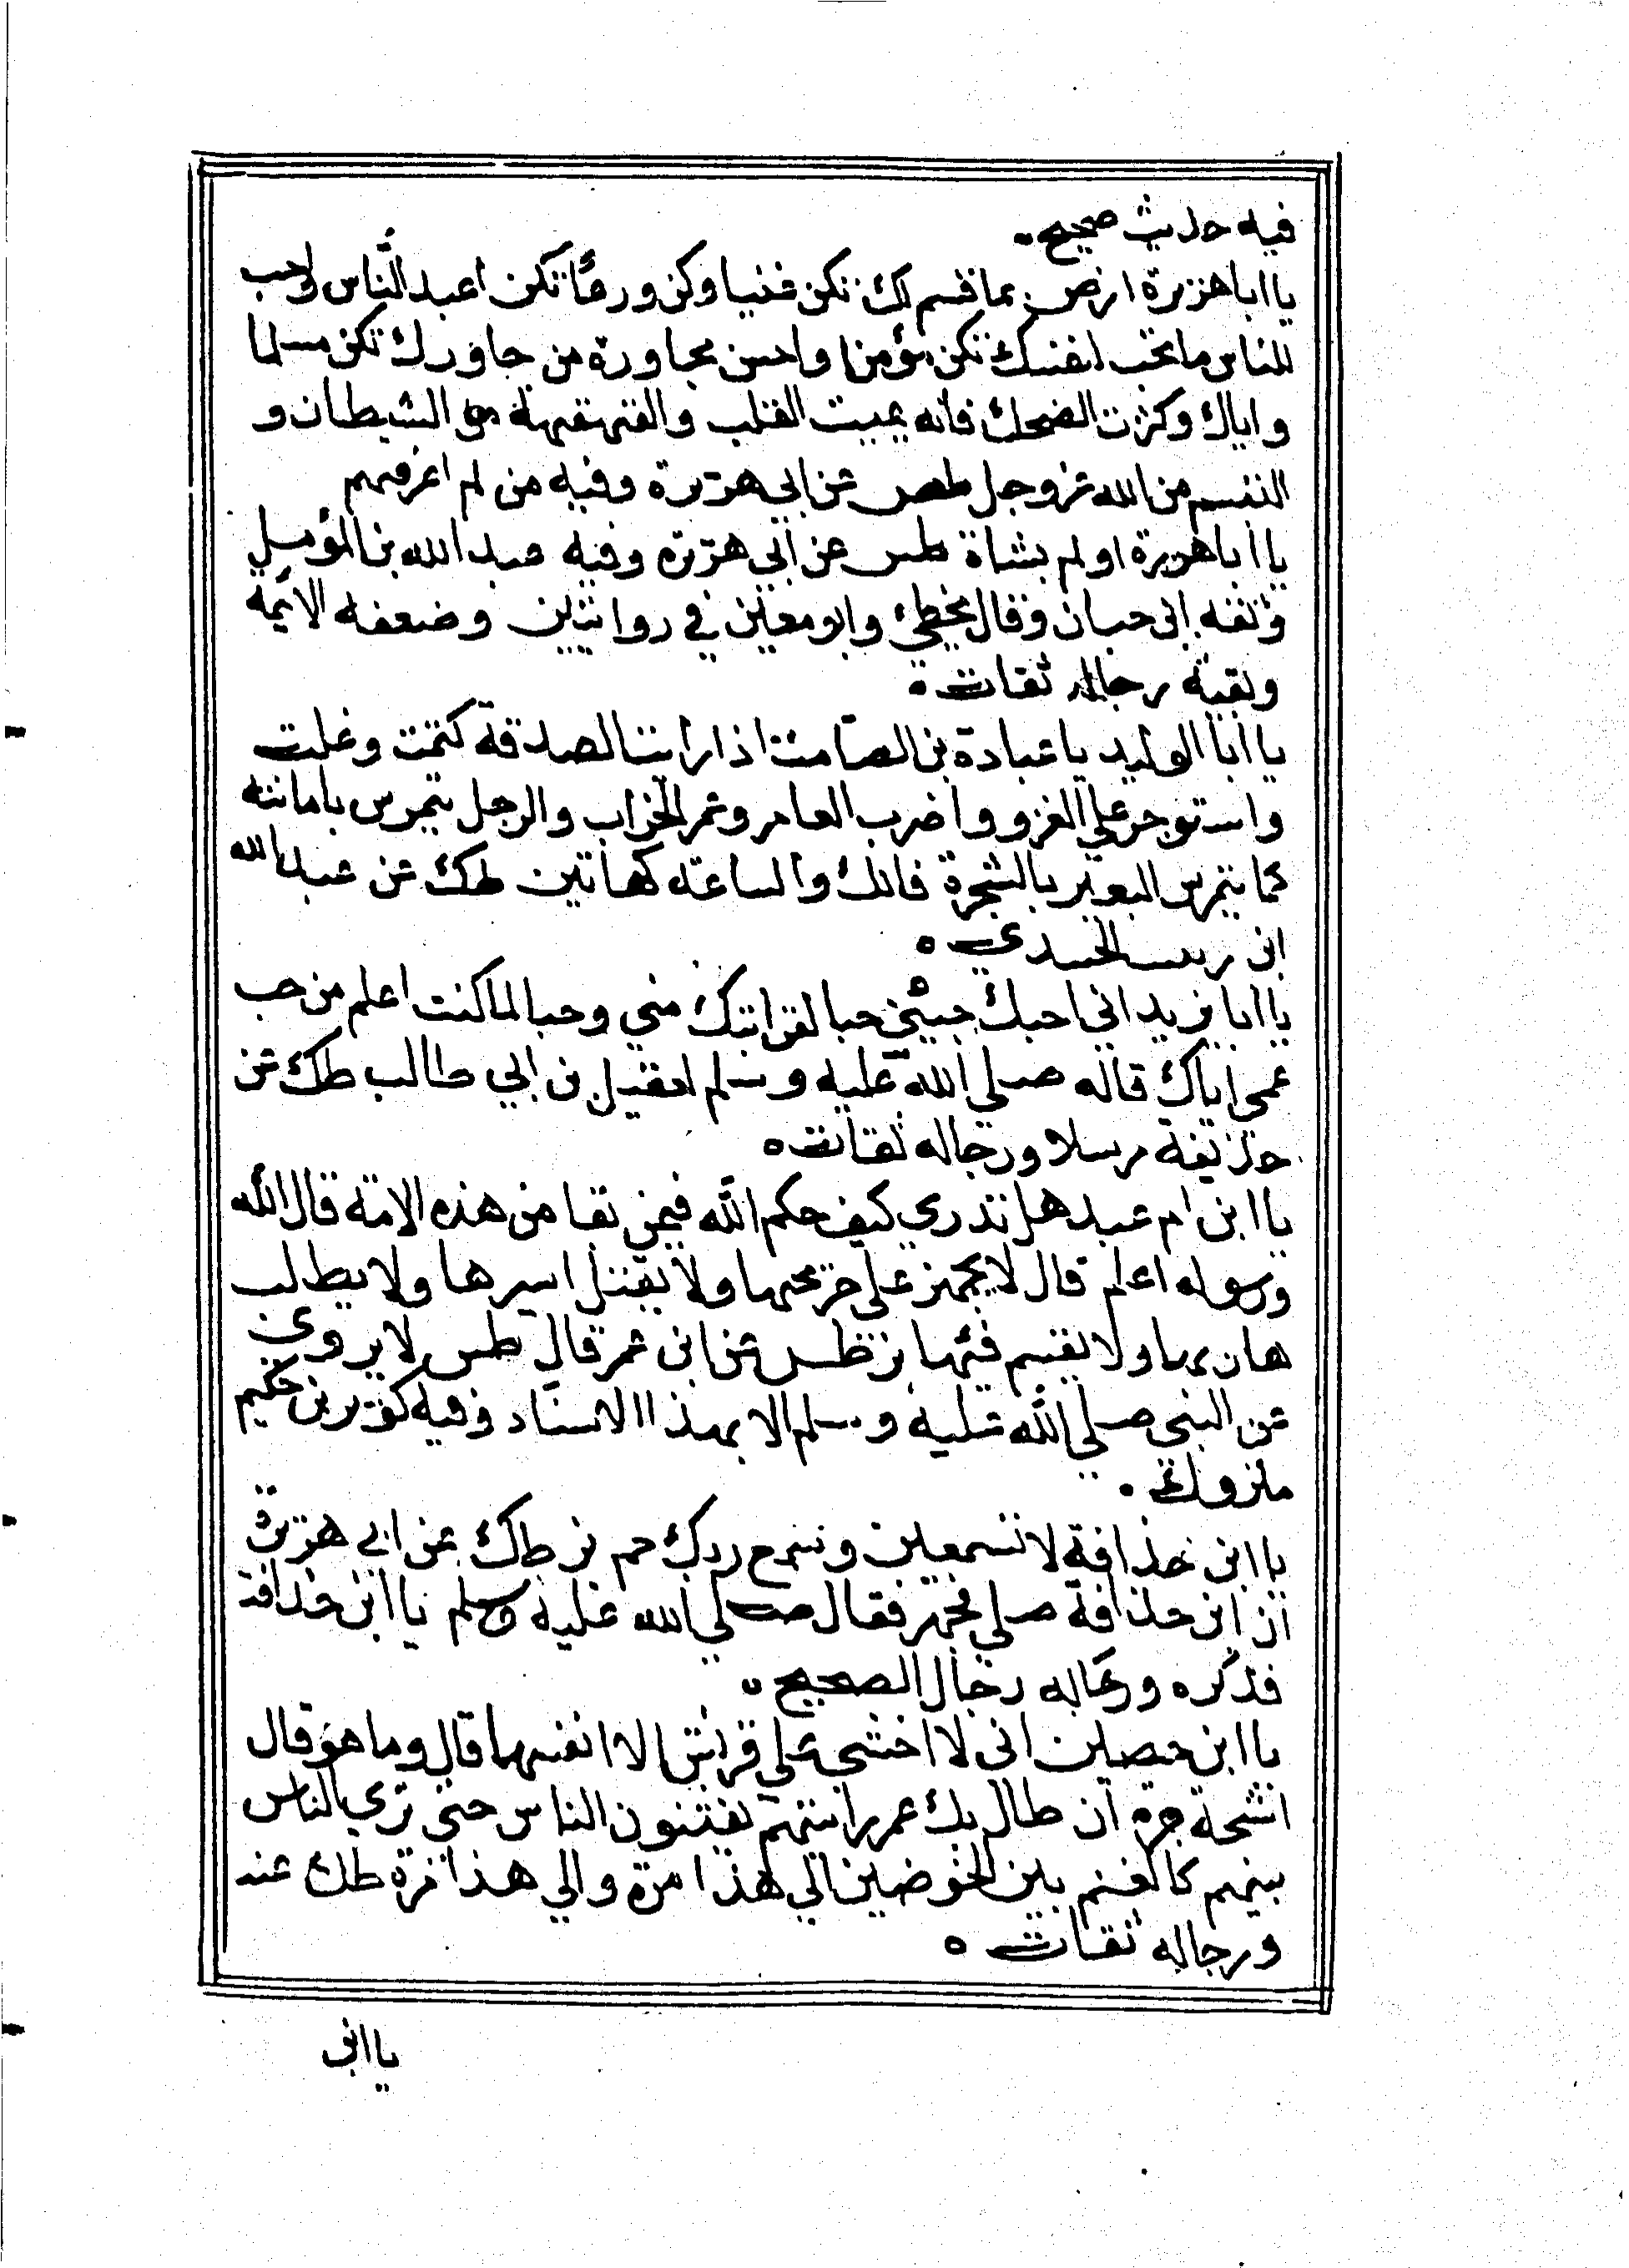 فيه حديث صحيح.
يا ابا هريرة ارض بما قسم لك تكن غنيا وكن ورعًا تكن اعبد النّاس واحب
للناس ما تحب لنفسك تكن مؤمنا واحسن مجاورة من جاورك تكن مسلما
واياك وكثرت الضحك فانه يميت القلب والقهقهة من الشيطان و
التبسم من الله عز وجل طص عن ابي هريرة وفيه من لم اعرفهم
يا ابا هريرة اولم بشاة طس عن ابي هريرة وفيه عبد الله بن المؤمل
وثقه ابن حبان وقال يخطئ وابو معين في روايتين وضعفه الائمة
وبقية رجاله ثقات ٥
يا ابا الوليد يا عبادة بن الصامت اذا رايت الصدقة كتمت وغلت
واستوجر علي الغزو واضرب العامر وعمر الخراب والرجل يتمرس بامانته
كما يتمرس البعير بالشجرة فانك والساعة كهاتين طك عن عبد الله
ابن الحدي ٥
يا ابا يزيد اني احبك حبين حبا لقرابتك مني وحبا لما كنت اعلم من حب
عمي اياك قاله صلي الله عليه وسلم لعقيل بن ابي طالب طك عن
حذيفة مرسلا ورجاله ثقات ٥
يا ابن ام عبد هل تدري كيف حكم الله فيمن بغا من هذه الامة قال الله
ورسوله اعلم قال لا يجهز علي جريحها ولا يقتل اسيرها ولا يطلب
هاربها ولا يقسم فيئها بز طس عن ابن عمر قال طس لا يروي
عن النبي صلي الله عليه وسلم الا بهذا الاسناد وفيه كوثر بن حكيم
متروك .
يا ابن حذافة لا تسمعين وسمع ربك حم بز طك عن ابي هريرة
ان ابن حذافة صلي فجهر فقال صلي الله عليه وسلم يا ابن حذافة
فذكره ورجاله رجال الصحيح ٥
يا ابن حصين اني لا اخشي علي قريش الا انفسها قال وما هو قال
اشحة بجرة ان طال بك عمر رايتهم يفتنون الناس حتي تري الناس
بينهم كالغنم بين الحوضين الي هذا مرة والي هذا مرة طك عنه
ورجاله ثقات ٥
يا ابن